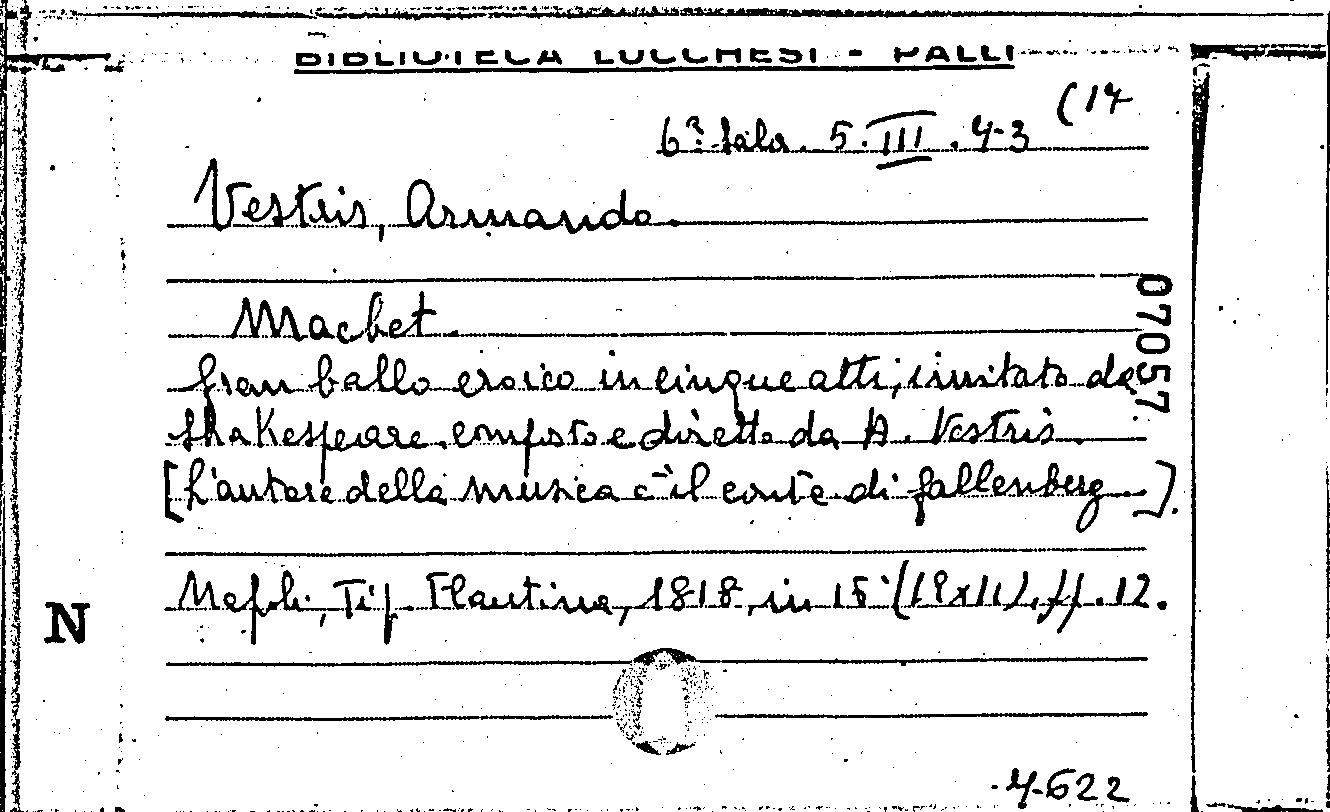 BIBLIOTECA LUCCHESI - PALLI
(14
6ª Sala. 5. III. 4-3
Vestris, Armando.
Macbet.
gran ballo eroico in cinque atti, imitato da
Shakespeare. composto e diretto da A. Vestris.
[L'autore della musica è il conte di Gallenberg.]
Napoli, Tip. Flautina, 1818, in 16° (19x11), pp. 12.
07057
N
4-622